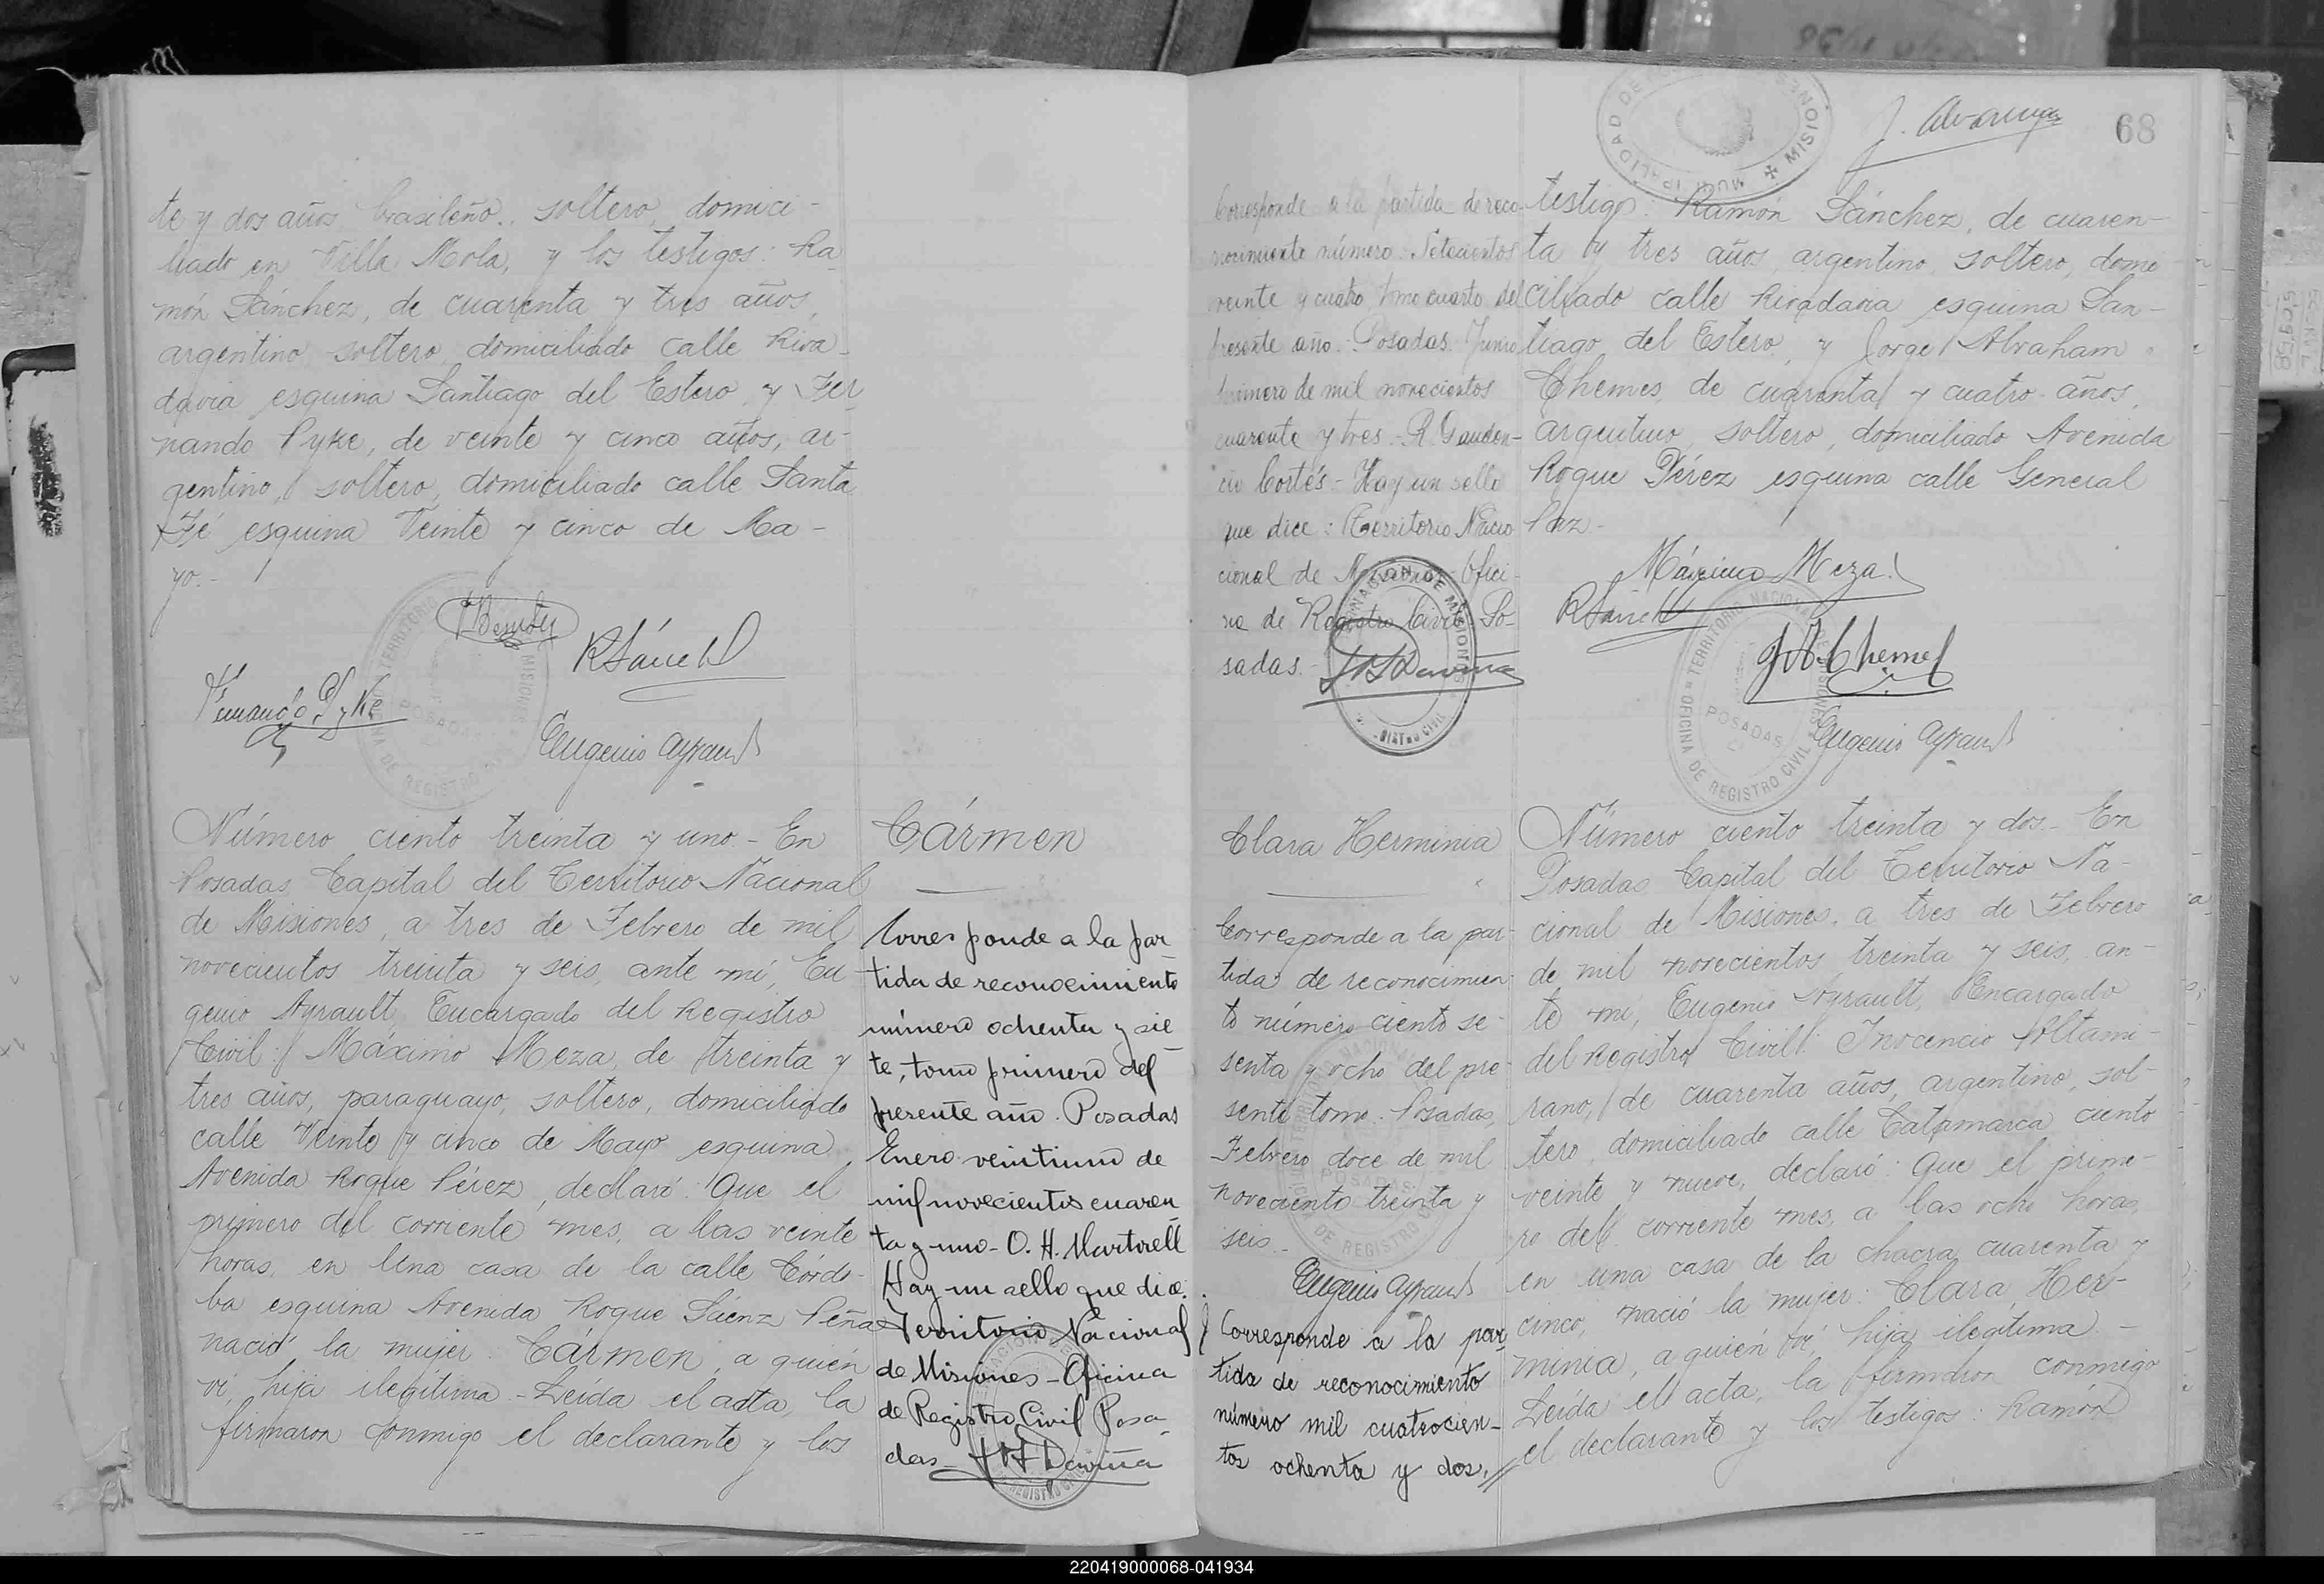 te y dos años, brasileño, soltero, domici-
liado en Villa Mola, y los testigos: Ra-
món Sánchez, de cuarenta y tres años,
argentino, soltero, domiciliado calle Riva-
davia esquina Santiago del Estero, y Fer-
nando Pyke, de veinte y cinco años, ar-
gentino, soltero, domiciliado calle Santa
Fé esquina Veinte y cinco de Ma-
yo.-
RSánchez
Fernando Pyke
Eugenio Ayrault
Número ciento treinta y uno.- En
Posadas, Capital del Territorio Nacional
de Misiones, a tres de Febrero de mil
novecientos treinta y seis, ante mí, Eu-
genio Ayrault, Encargado del Registro
Civil: Máximo Meza, de treinta y
tres años, paraguayo, soltero, domiciliado
calle Veinte y cinco de Mayo esquina
Avenida Roque Pérez, declaró: Que el
primero del corriente mes, a las veinte
horas, en una casa de la calle Córdo-
ba esquina Avenida Roque Sáenz Peña
nació la mujer: Cármen, a quién
ví, hija ilegítima.- Leída el acta, la
firmaron conmigo el declarante y los
Cármen
Corresponde a la par-
tida de reconocimiento
número ochenta y sie-
te, tomo primero del
presente año. Posadas
Enero veintiuno de
mil novecientos cuaren-
ta y uno- O. H. Martorell
Hay un sello que dice:
Territorio Nacional
de Misiones- Oficina
de Registro Civil Posa-
das-
68
Corresponde a la partida de reco-
nocimiento número Setecientos
veinte y cuatro tomo cuarto del
presente año.- Posadas. Junio
primero de mil novecientos
cuarenta y tres.- R. Gauden-
cio Cortés.- Hay un sello
que dice: Territorio Nacio-
cional de Misiones- Ofici-
na de Registro Civil- Po-
sadas.-
testigos: Ramón Sánchez, de cuaren-
ta y tres años, argentino, soltero, domi-
ciliado calle Rivadavia esquina San-
tiago del Estero, y Jorge Abraham
Chemes, de cuarenta y cuatro años,
argentino, soltero, domiciliado Avenida
Roque Pérez esquina calle General
Paz.-
Máximo Meza
RSánchez
J.A. Chemes
Eugenio Ayrault
TERRITORIO NACIONAL DE MISIONES
OFICINA DE REGISTRO CIVIL
POSADAS
Clara Herminia
Corresponde a la par-
tida de reconocimien-
to número ciento se-
senta y ocho del pre-
sente tomo. Posadas,
Febrero doce de mil
noveciento treinta y
seis.-
Eugenio Ayrault
Corresponde a la par-
tida de reconocimiento
número mil cuatrocien-
tos ochenta y dos,//
Número ciento treinta y dos.- En
Posadas, Capital del Territorio Na-
cional de Misiones, a tres de Febrero
de mil novecientos treinta y seis, an-
te mí, Eugenio Ayrault, Encargado
del Registro Civil: Inocencio Altami-
rano, de cuarenta años, argentino, sol-
tero, domiciliado calle Catamarca ciento
veinte y nueve, declaró: Que el prime-
ro del corriente mes, a las ocho horas,
en una casa de la chacra cuarenta y
cinco, nació la mujer: Clara Her-
minia, a quién ví, hija ilegítima.-
Leída el acta, la firmaron conmigo
el declarante y los testigos: Ramón
220419000068-041934